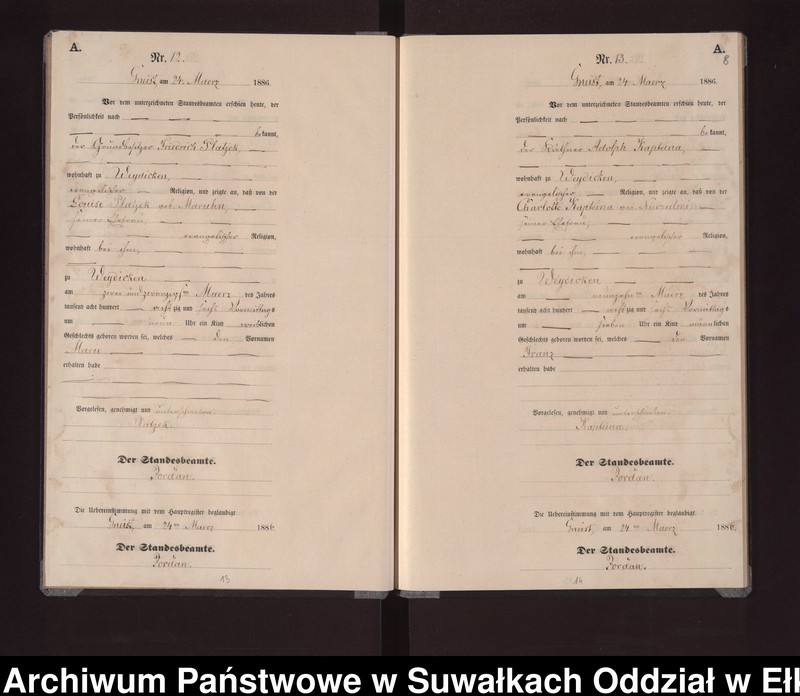 A.
Nr. 12.
am 24. Maerz 1886
Vor dem unterzeichneten Standesbeamten erschien heute, der
Persönlichkeit nach
bekannt,
der Grundbesitzer Friedrich
wohnhaft zu Weydicken,
evangelischer Religion, und zeigte an, daß von der
Louise geb.
seiner Ehefrau,
evangelischer Religion,
wohnhaft bei ihm,
zu Weydicken
am zwei und zwanzigsten Maerz des Jahres
tausend acht hundert achtzig und sechs Vormittags
um neun Uhr ein Kind weiblichen
Geschlechts geboren worden sei, welches den Vornamen
erhalten habe
Vorgelesen, genehmigt und unterschrieben.
Der Standesbeamte.
Jordan.
Die Uebereinstimmung mit dem Hauptregister beglaubigt
am 24ten Maerz 1886
Der Standesbeamte.
Jordan.
13
A.
8
Nr. 13.
am 24 Maerz 1886.
Vor dem unterzeichneten Standesbeamten erschien heute, der
Persönlichkeit nach
bekannt,
der Käthner Adolph Kapteina,
wohnhaft zu Weydicken,
evangelischer Religion, und zeigte an, daß von der
Charlotte Kapteina geb.
seiner Ehefrau,
evangelischer Religion,
wohnhaft bei ihm,
zu Weydicken
am neunzehn Maerz des Jahres
tausend acht hundert achtzig und sechs Vormittags
um sieben Uhr ein Kind maennlichen
Geschlechts geboren worden sei, welches den Vornamen
Franz
erhalten habe
Vorgelesen, genehmigt und unterschrieben.
Kapteina.
Der Standesbeamte.
Jordan.
Die Uebereinstimmung mit dem Hauptregister beglaubigt
am 24ten Maerz 1886.
Der Standesbeamte.
Jordan.
14
Archiwum Państwowe w Suwałkach Oddział w Ełk